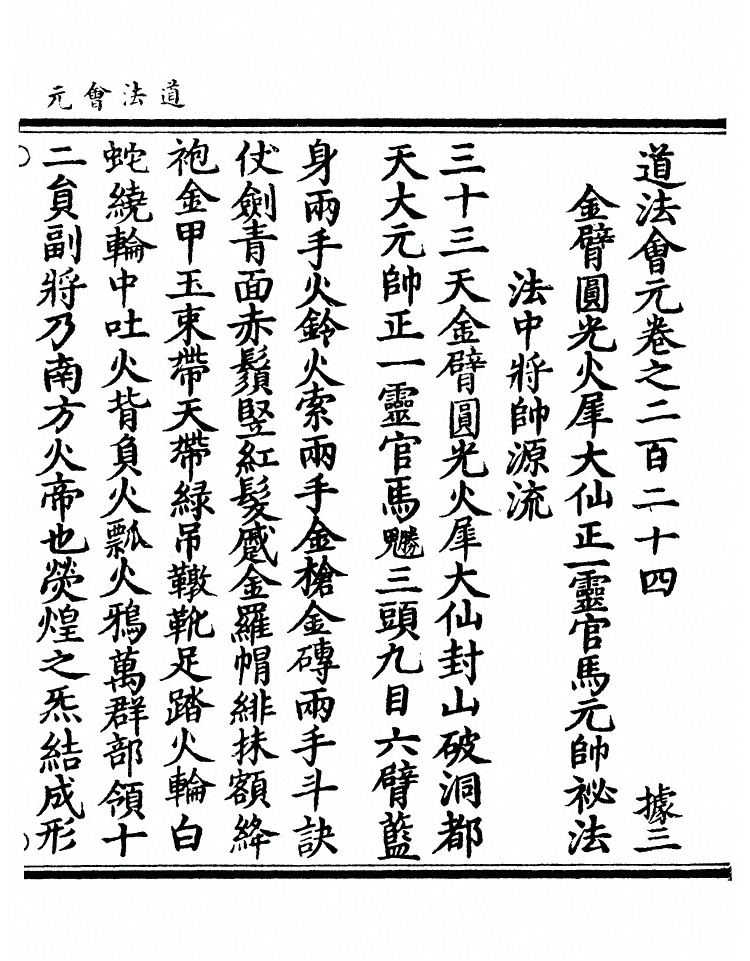 道法會元
道法會元卷之二百二十四 據三
金臂圓光火犀大仙正一靈官馬元帥祕法
法中將帥源流
三十三天金臂圓光火犀大仙封山破洞都
天大元帥正一靈官馬魈三頭九目六臂藍
身兩手火鈴火索兩手金槍金磚兩手斗訣
仗劍青面赤鬚竪紅髮蹙金羅帽緋抹額絳
袍金甲玉束帶天帶緑吊鞻靴足踏火輪白
蛇繞輪中吐火背負火瓢火鴉萬群部領十
二員副將乃南方火帝也熒煌之炁結成形